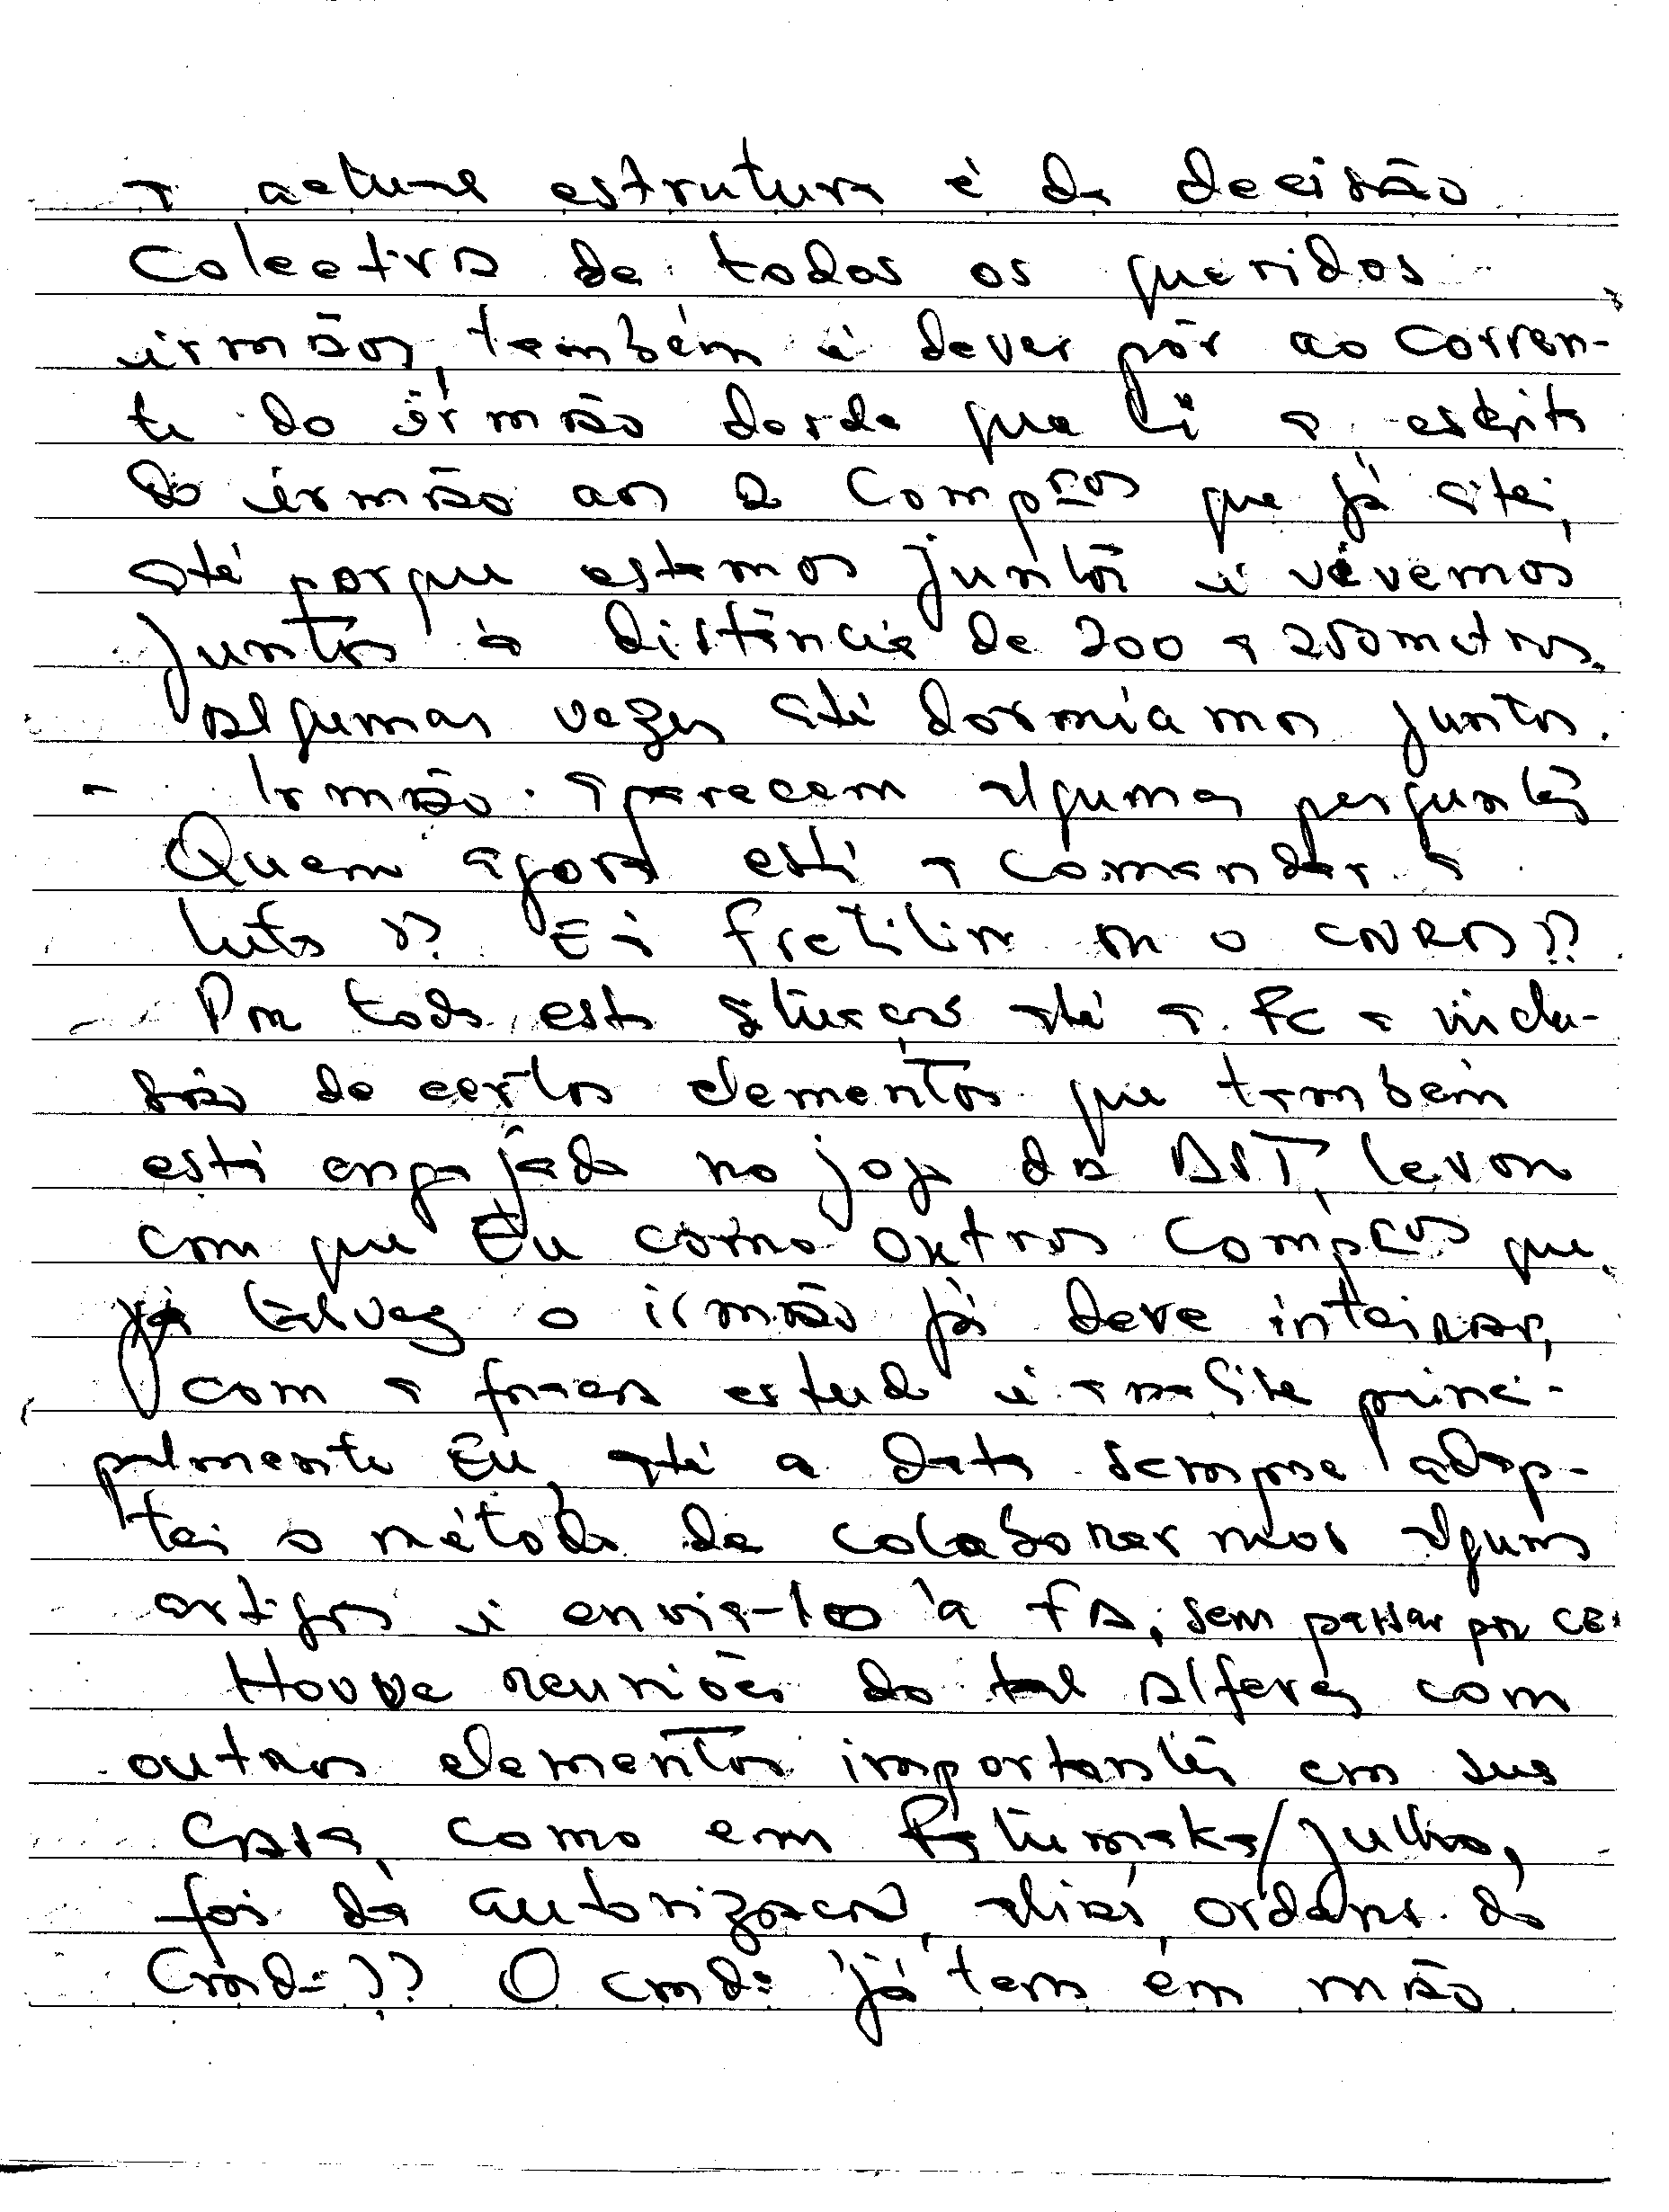 a actual estrutura é da decisão
Colectiva de todos os queridos
irmãos, também é dever pôr ao corren-
te do irmão desde que li a escrita
do irmão aos 2 Compros que já citei,
até porque estamos juntos e vivemos
juntos à distância de 200 a 250 metros.
Algumas vezes até dormíamos juntos.
- Irmão. Aparecem algumas perguntas
Quem agora está a comandar a
luta?? É a Fretilin ou o CNRM??
Por toda esta situação até a FC a inclu-
são de certos elementos que também
está engajada no jogo da AST, levou
com que Eu como outros Compros que
já talvez o irmão já deve inteirar,
com a fraca estudo e análise princi-
palmente Eu, até a data sempre adop-
tei o método de colaborarmos alguns
artigos e enviá-lo à FA, sem passar por CE
Houve reuniões do tal Alferes com
outros elementos importantes em sua
Casa, como em Fatumaka/Julho,
foi da autorização, aliás, ordens do
Cmd-?? O cmd: já tem em mão